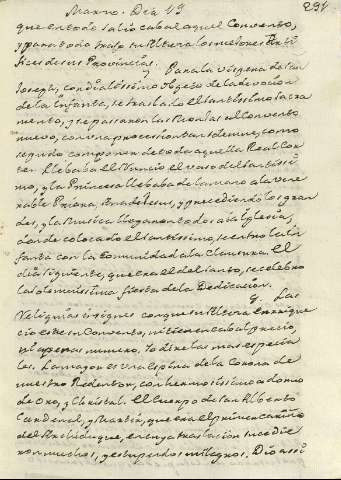 Marzo. Dia 19 294
que en todo salio cabal aquel Convento,
y para todo traxo su Alteza los mejores Arti-
fices de sus Provincias. Para la vispera de San
Joseph, cordialissimo objeto de la devocion
de la Infanta, se traslado el Santissimo Sacra
mento, y se passaron las Monjas al Convento
nuevo, con una procession tan solemne, como
se pudo componer de toda aquella Real Cor
te. Llebaba el Nuncio el vaso del Santissi
mo, y la Princesa llebaba de la mano a la vene
rable Priora, Ana de Jesus, y precediendo los gran
des, y la Musica llegaron todos a la Iglesia,
donde colocado el Santissimo, se entro la In
fanta con la Comunidad a la Clausura. El
dia siguiente, que era el del Santo, se celebro
la solemnissima fiesta de la Dedicacion.
9. Las
Reliquias insignes con que su Alteza enrriquе
cio este su Convento, ni tienen cabal precio,
ni apenas numero. Yo dire las mas especia
les. La mayor es una Espina de la Corona de
nuestro Redentor, con hermosissimo adorno
de Oro, y Christal. El Cuerpo de San Alberto
Cardenal, y Martir, que era el primer cariño
del Archiduque, en cuya traslacion sucedie
ron muchos, y estupendos milagros. Dio assi